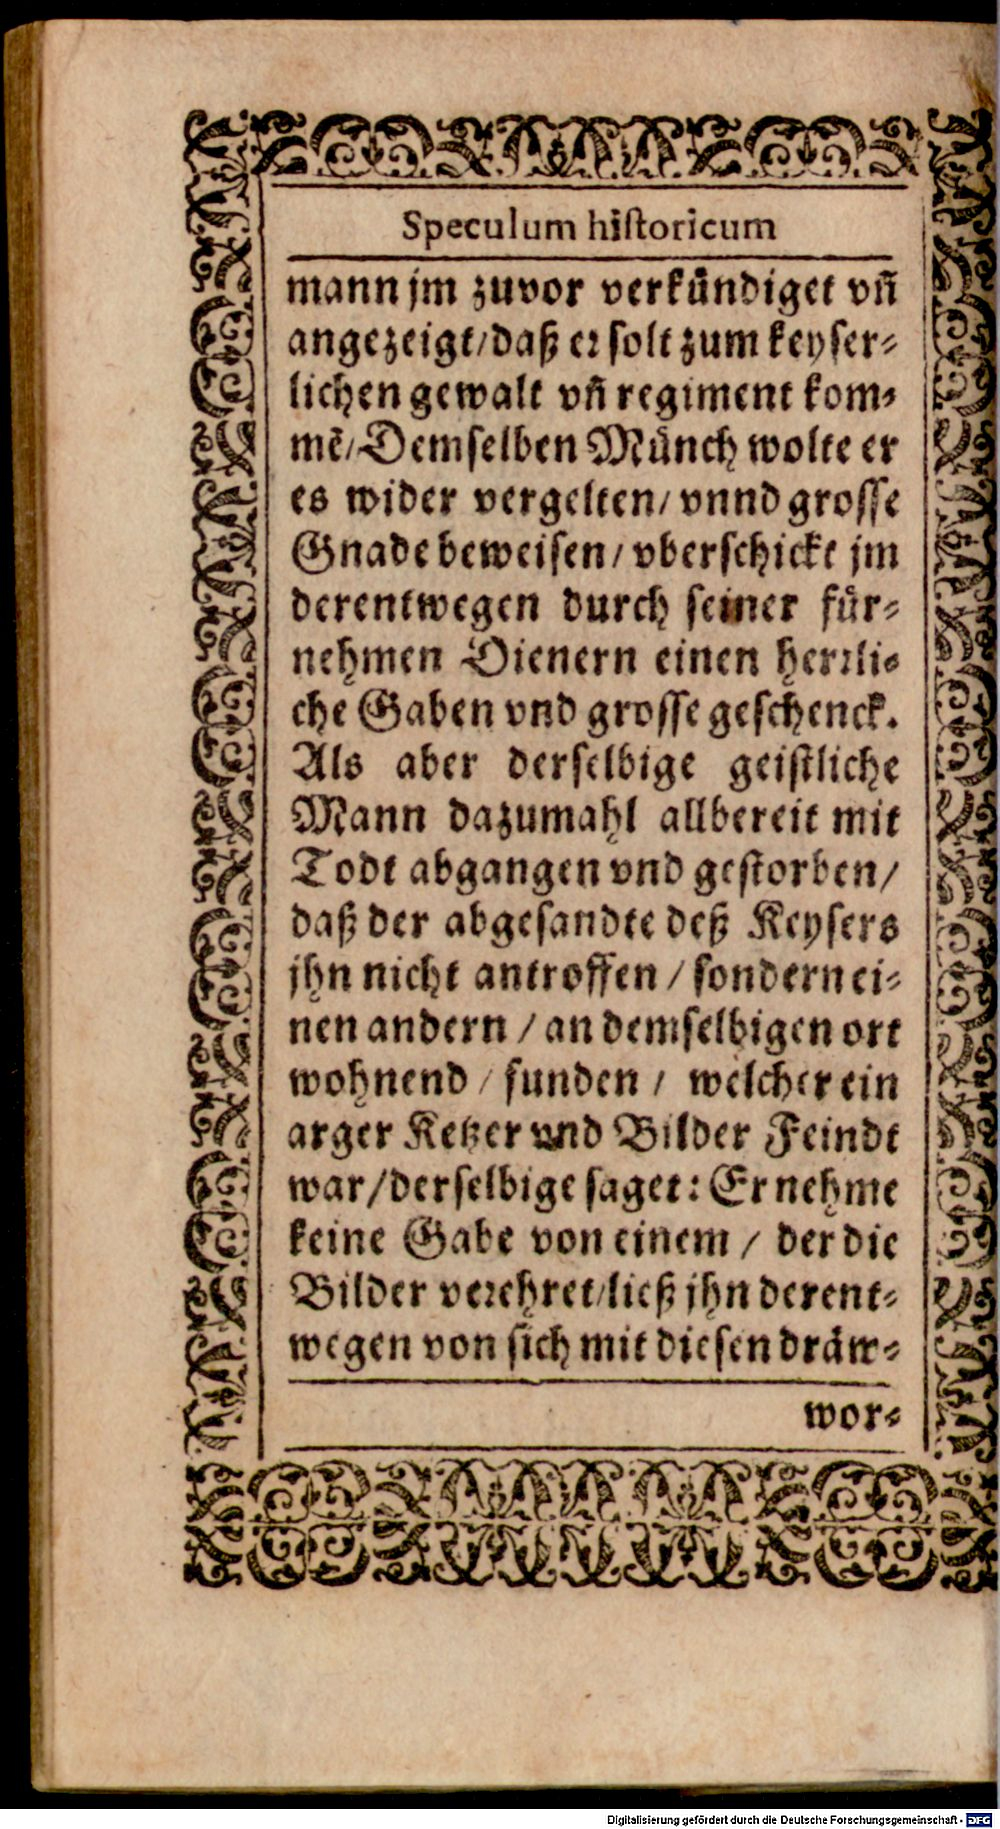 Speculum historicum
mann jm zuvor verkündiget vñ
angezeigt/daß er solt zum keyser-
lichen gewalt vñ regiment kom-
mē/Demselben Münch wolte er
es wider vergelten/ vnnd grosse
Gnade beweisen/ vberschickt jm
derentwegen durch seiner für-
nehmen Dienern einen herrli-
che Gaben vnd grosse geschenck.
Als aber derselbige geistliche
Mann dazumahl allbereit mit
Todt abgangen vnd gestorben/
daß der abgesandte deß Keysers
jhn nicht antroffen / sondern ei-
nen andern / an demselbigen ort
wohnend / funden / welcher ein
arger Ketzer vnd Bilder Feindt
war/derselbige saget: Er nehme
keine Gabe von einem / der die
Bilder verehret/ließ jhn derent-
wegen von sich mit diesen dräw-
wor-
Digitalisierung gefördert durch die Deutsche Forschungsgemeinschaft - DFG